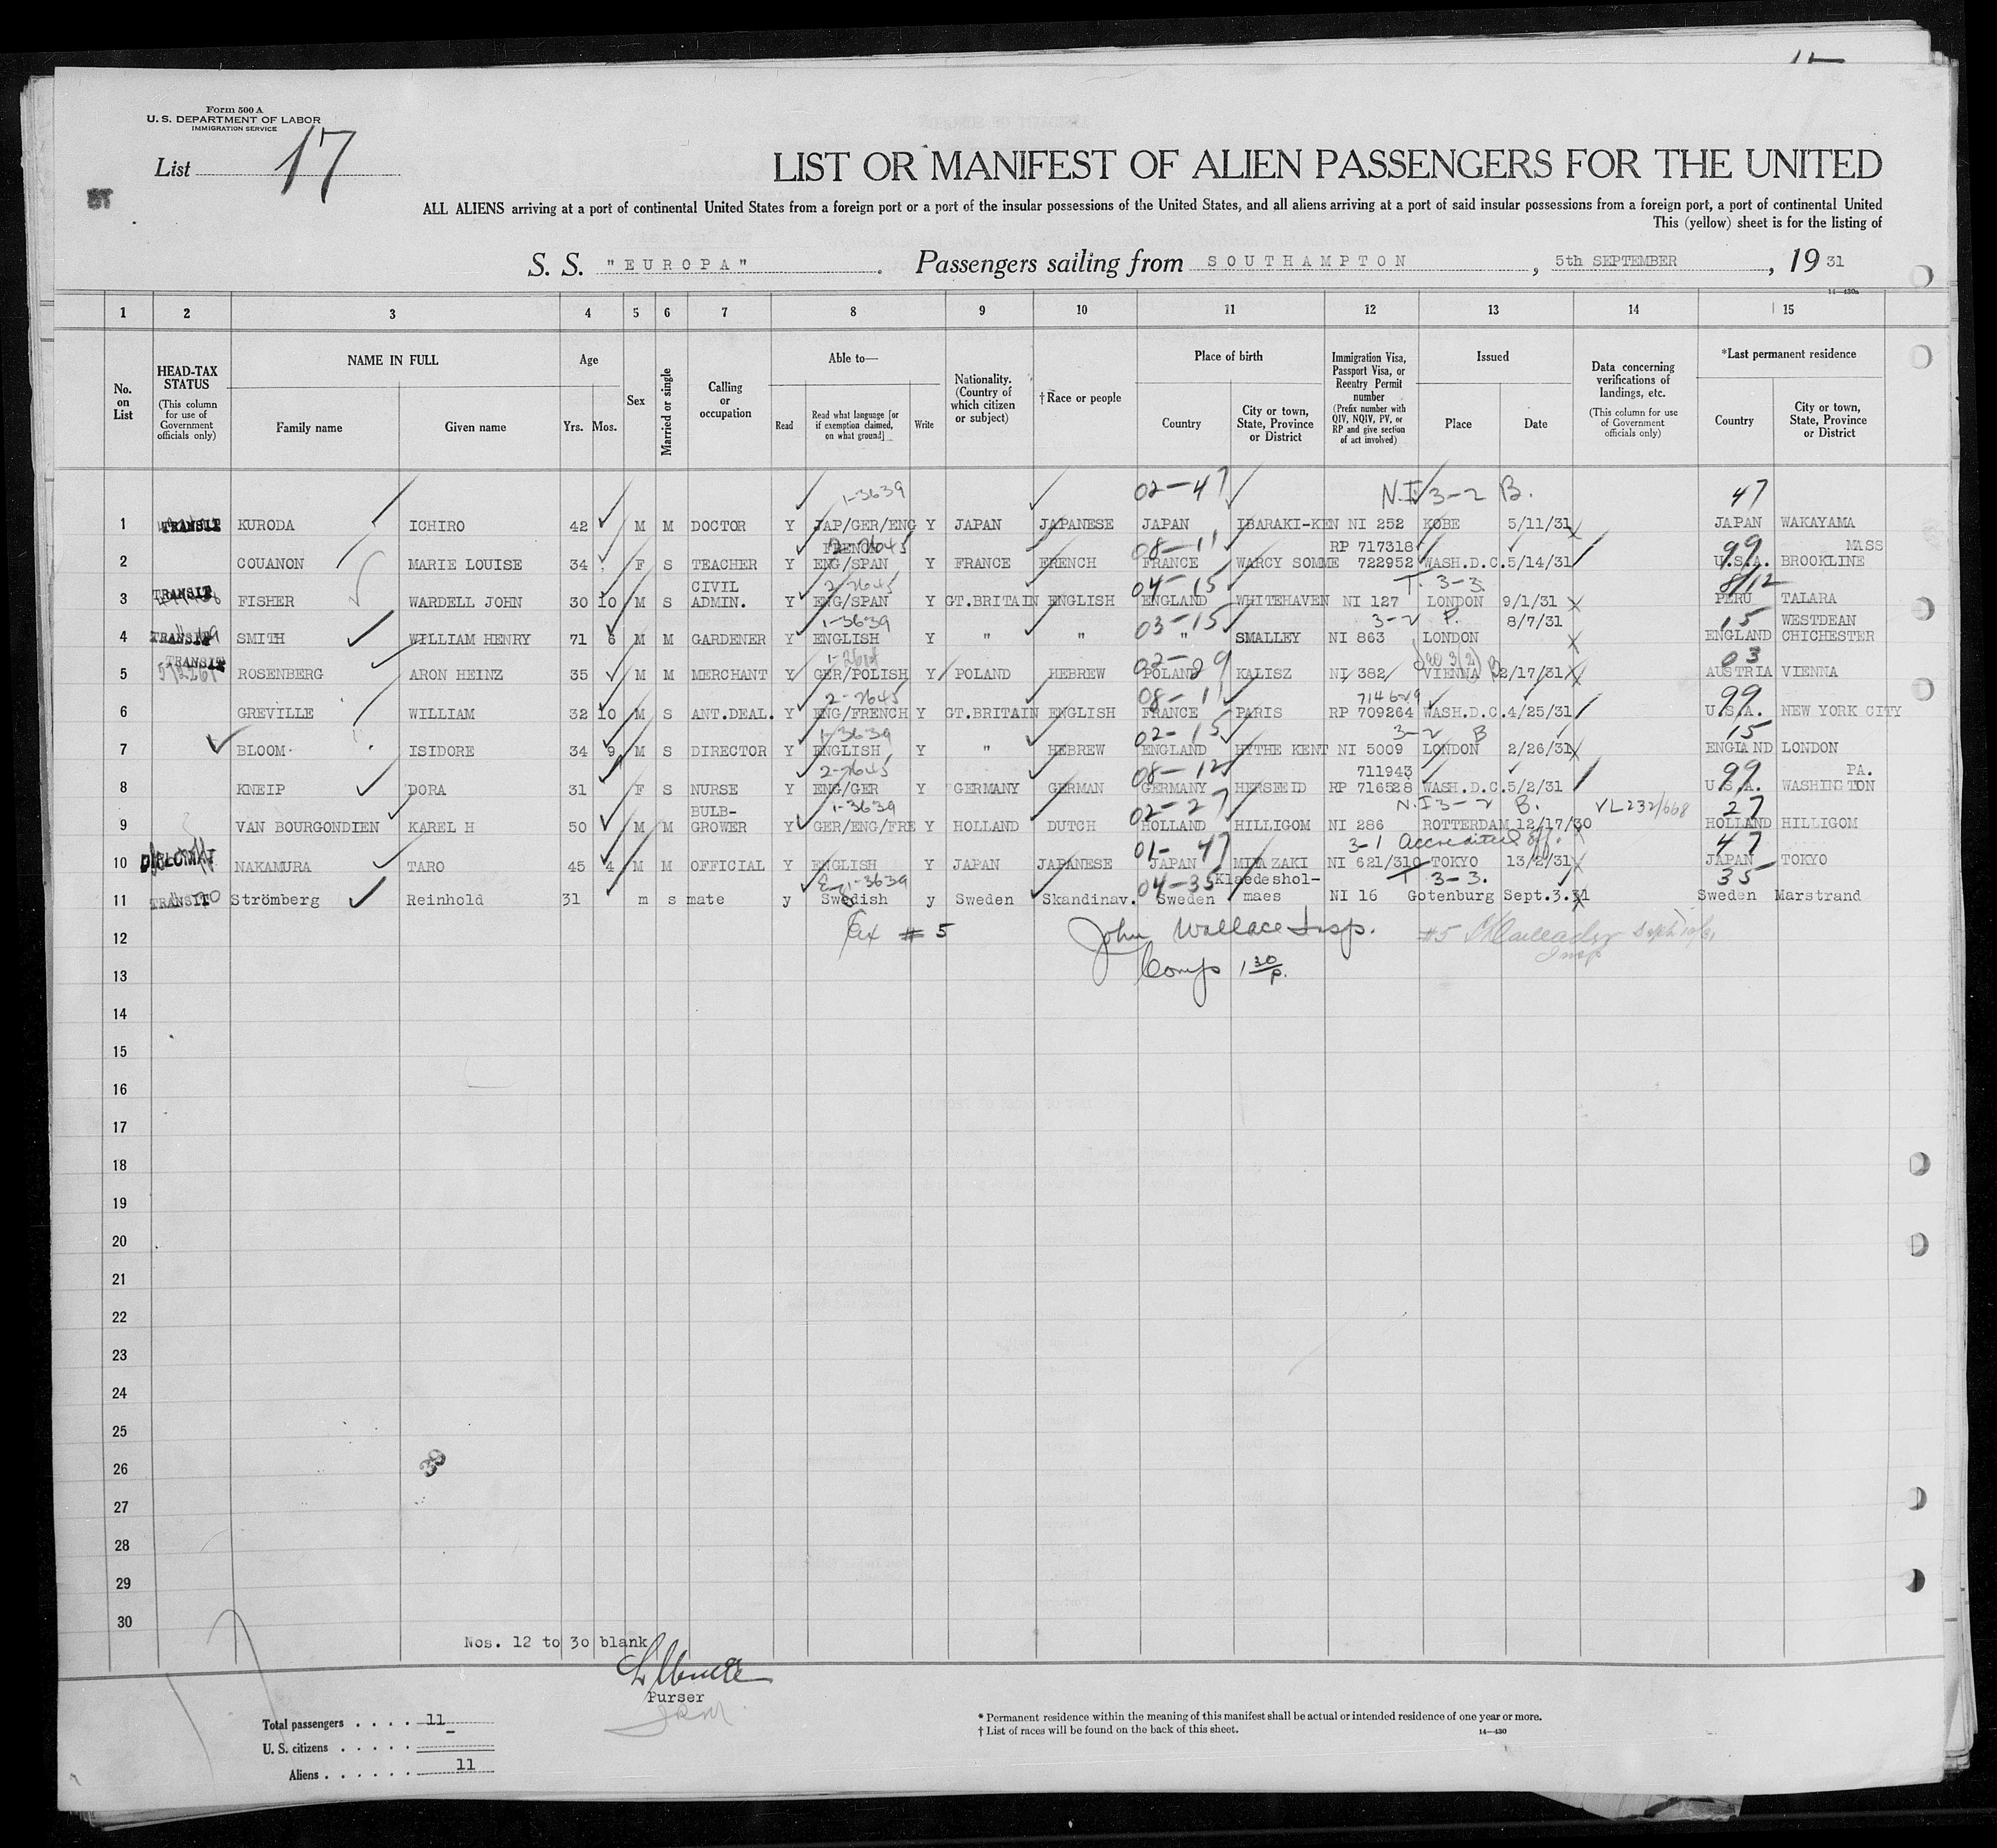 Form 500 A
U. S. DEPARTMENT OF LABOR
IMMIGRATION SERVICE
List 17
LIST OR MANIFEST OF ALIEN PASSENGERS FOR THE UNITED
ALL ALIENS arriving at a port of continental United States from a foreign port or a port of the insular possessions of the United States, and all aliens arriving at a port of said insular possessions from a foreign port, a port of continental United
This (yellow) sheet is for the listing of
S. S. "EUROPA" . Passengers sailing from SOUTHAMPTON , 5th SEPTEMBER , 19 31
14—430a
1 2 3 4 5 6 7 8 9 10 11 12 13 14 15
No. on List
HEAD-TAX STATUS (This column for use of Government officials only)
NAME IN FULL
Family name Given name
Age
Yrs. Mos.
Sex
Married or single
Calling or occupation
Able to—
Read Read what language [or if exemption claimed, on what ground] Write
Nationality. (Country of which citizen or subject)
† Race or people
Place of birth
Country City or town, State, Province or District
Immigration Visa, Passport Visa, or Reentry Permit number (Prefix number with QIV, NQIV, PV, or RP and give section of act involved)
Issued
Place Date
Data concerning verifications of landings, etc. (This column for use of Government officials only)
*Last permanent residence
Country City or town, State, Province or District
1-3639 02-47 N.I 3-2 B. 47
1 TRANSIT KURODA ICHIRO 42 M M DOCTOR Y JAP/GER/ENG Y JAPAN JAPANESE JAPAN IBARAKI-KEN NI 252 KOBE 5/11/31 JAPAN WAKAYAMA
FRENCH 2-2645 08-11 RP 717318 99 MASS
2 COUANON MARIE LOUISE 34 F S TEACHER Y ENG/SPAN Y FRANCE FRENCH FRANCE WARCY SOMME 722952 WASH.D.C. 5/14/31 U.S.A. BROOKLINE
TRANSIT CIVIL 2-2645 04-15 T. 3-3 8/12
3 FISHER WARDELL JOHN 30 10 M S ADMIN. Y ENG/SPAN Y GT.BRITAIN ENGLISH ENGLAND WHITEHAVEN NI 127 LONDON 9/1/31 PERU TALARA
1-3639 03-15 3-2 P. 8/7/31 15 WESTDEAN
4 TRANSIT SMITH WILLIAM HENRY 71 6 M M GARDENER Y ENGLISH Y " " " SMALLEY NI 863 LONDON ENGLAND CHICHESTER
TRANSIT 02-29 03
5 ROSENBERG ARON HEINZ 35 M M MERCHANT Y GER/POLISH Y POLAND HEBREW POLAND KALISZ NI 382 VIENNA 2/17/31 AUSTRIA VIENNA
2-2645 08-11 714629 99
6 GREVILLE WILLIAM 32 10 M S ANT.DEAL. Y ENG/FRENCH Y GT.BRITAIN ENGLISH FRANCE PARIS RP 709264 WASH.D.C. 4/25/31 U.S.A. NEW YORK CITY
1-3639 02-15 3-2 B 15
7 BLOOM ISIDORE 34 9 M S DIRECTOR Y ENGLISH Y " HEBREW ENGLAND HYTHE KENT NI 5009 LONDON 2/26/31 ENGLAND LONDON
2-2645 08-12 711943 99 PA.
8 KNEIP DORA 31 F S NURSE Y ENG/GER Y GERMANY GERMAN GERMANY HERSEEID RP 716528 WASH.D.C. 5/2/31 U.S.A. WASHINGTON
BULB- 1-3639 02-27 N.I 3-2 B. VL 232/668 27
9 VAN BOURGONDIEN KAREL H 50 M M GROWER Y GER/ENG/FRE Y HOLLAND DUTCH HOLLAND HILLIGOM NI 286 ROTTERDAM 12/17/30 HOLLAND HILLIGOM
01-47 3-1 Accredited Off. 47
10 DIPLOMAT NAKAMURA TARO 45 4 M M OFFICIAL Y ENGLISH Y JAPAN JAPANESE JAPAN MIYAZAKI NI 621/310 TOKYO 13/2/31 JAPAN TOKYO
1-3639 04-35 Klaedeshol- T 3-3. 35
11 TRANSIT Strömberg Reinhold 31 m s mate y Swedish y Sweden Skandinav. Sweden maes NI 16 Gotenburg Sept.3.31 Sweden Marstrand
12 Ex # 5 John Wallace Insp. #5
13 Comp 1 30/p.
14
15
16
17
18
19
20
21
22
23
24
25
26
27
28
29
30
Nos. 12 to 30 blank
Purser
Total passengers . . . . 11
U. S. citizens . . . . .
Aliens . . . . . . 11
* Permanent residence within the meaning of this manifest shall be actual or intended residence of one year or more.
† List of races will be found on the back of this sheet.
14—430